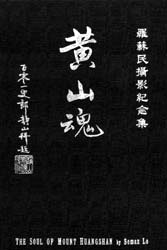 羅蘇民攝影紀念集
黃山魂
百零一叟郎靜山拜題
THE SOUL OF MOUNT HUANGSHAN by Soman Lo